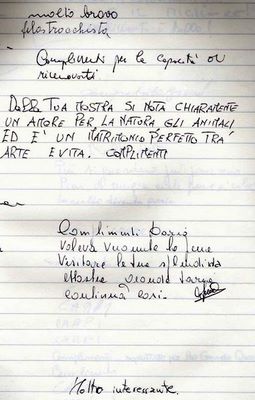 molto bravo
filastrocchista
Complimenti per le capacità di
rinnovarti
DALLA TUA MOSTRA SI NOTA CHIARAMENTE
UN AMORE PER LA NATURA GLI ANIMALI
ED E' UN MATRIMONIO PERFETTO TRA'
ARTE E VITA. COMPLIMENTI
Complimenti Dario
Valeva
Visitare la tua splendida
Mostra
continua così
Molto interessante.